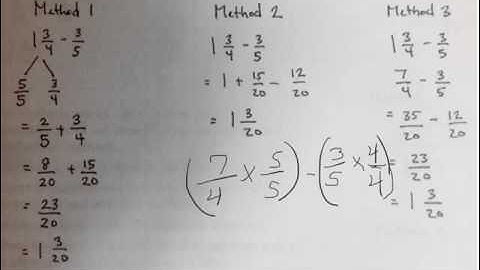 Method 1
1 3/4 - 3/5
5/5 3/4
= 2/5 + 3/4
= 8/20 + 15/20
= 23/20
= 1 3/20
Method 2
1 3/4 - 3/5
= 1 + 15/20 - 12/20
= 1 3/20
(7/4 × 5/5) - (3/5 × 4/4)
Method 3
1 3/4 - 3/5
7/4 - 3/5
= 35/20 - 12/20
= 23/20
= 1 3/20